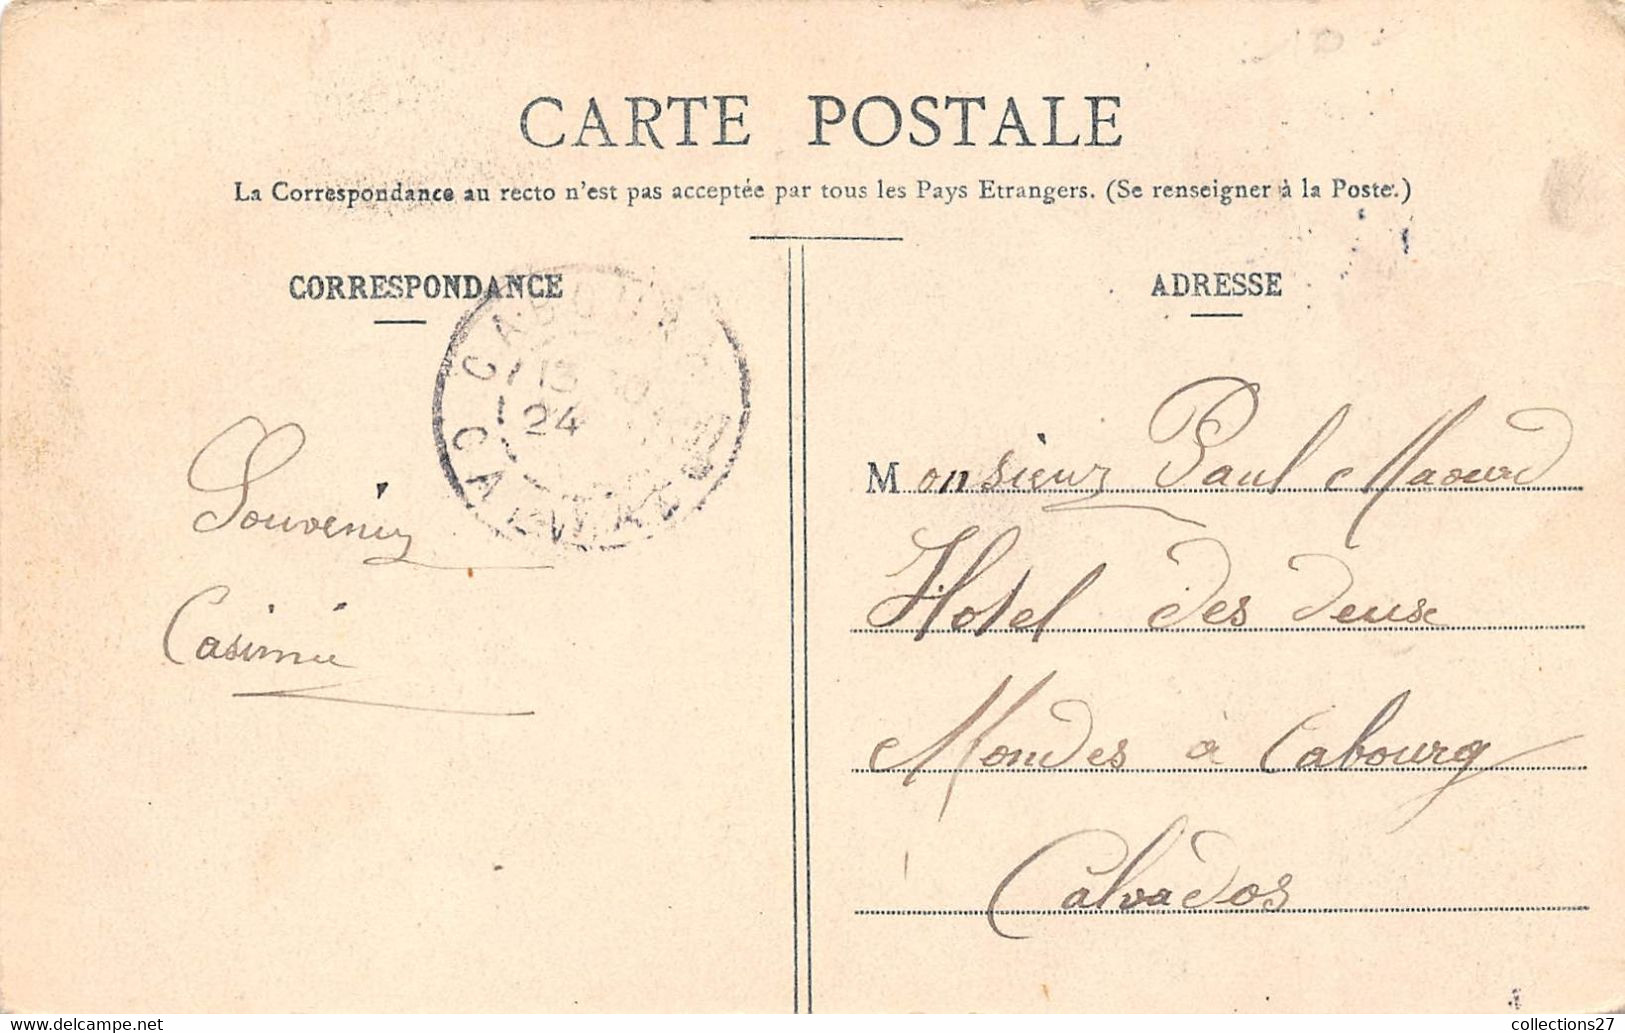 CARTE POSTALE
La Correspondance au recto n'est pas acceptée par tous les Pays Etrangers. (Se renseigner à la Poste.)
CORRESPONDANCE
CABOURG
13
24
CALVADOS
Souvenir
Casimir
ADRESSE
Monsieur Paul
Hotel des deux
Mondes à Cabourg
Calvados
collections27